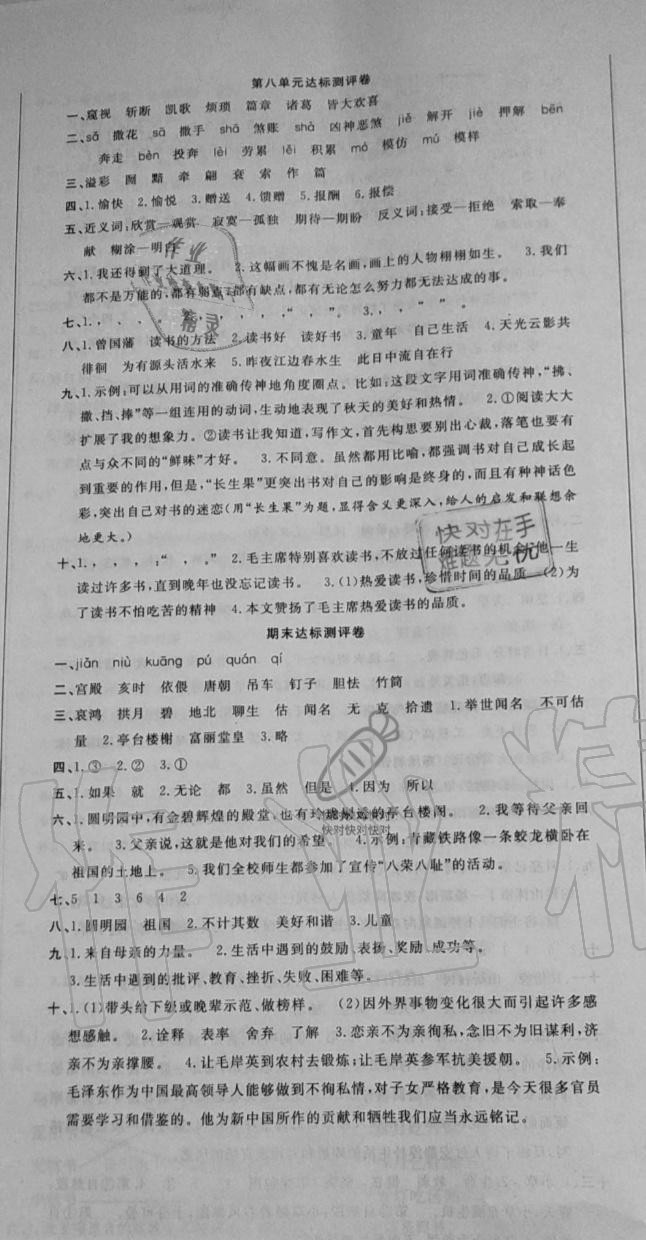 第八单元达标测评卷
一、窥视 斩断 凯歌 烦琐 篇章 诸葛 皆大欢喜
二、sǎ 撒花 sā 撒手 shā 煞账 shà 凶神恶煞 jiě 解开 jiè 押解 bēn
奔走 bèn 投奔 lěi 劳累 lěi 积累 mó 模仿 mú 模样
三、溢彩 囫 黯 牵 翩 衰 索 作 篇
四、1.愉快 2.愉悦 3.赠送 4.馈赠 5.报酬 6.报偿
五、近义词:欣赏—观赏 寂寞—孤独 期待—期盼 反义词:接受—拒绝 索取—奉
献 糊涂—明白
六、1.我还得到了大道理。 2.这幅画不愧是名画,画上的人物栩栩如生。 3.我们
都不是万能的,都有弱点,都有缺点,都有无论怎么努力都无法达成的事。
七、1.
八、1.曾国藩 读书的方法 2.读书好 读好书 3.童年 自己生活 4.天光云影共
徘徊 为有源头活水来 5.昨夜江边春水生 此日中流自在行
九、1.示例:可以从用词的准确传神地角度圈点。比如:这段文字用词准确传神,“拂、
撒、挡、捧”等一组连用的动词,生动地表现了秋天的美好和热情。 2.①阅读大大
扩展了我的想象力。②读书让我知道,写作文,首先构思要别出心裁,落笔也要有
点与众不同的“鲜味”才好。 3.不同意。虽然都用比喻,都强调书对自己成长起
到重要的作用,但是,“长生果”更突出书对自己的影响是终身的,而且有种神话色
彩,突出自己对书的迷恋(用“长生果”为题,显得含义更深入,给人的启发和联想余
地更大。)
十、1.,,:“,。” 2.毛主席特别喜欢读书,不放过任何读书的机会,他一生
读过许多书,直到晚年也没忘记读书。 3.(1)热爱读书,珍惜时间的品质 (2)为
了读书不怕吃苦的精神 4.本文赞扬了毛主席热爱读书的品质。
期末达标测评卷
一、jiǎn niù kuāng pú quán qí
二、宫殿 亥时 依偎 唐朝 吊车 钉子 胆怯 竹简
三、哀鸿 拱月 碧 地北 聊生 估 闻名 无 克 拾遗 1.举世闻名 不可估
量 2.亭台楼榭 富丽堂皇 3.略
四、1.③ 2.② 3.①
五、1.如果 就 2.无论 都 3.虽然 但是 4.因为 所以
六、1.圆明园中,有金碧辉煌的殿堂,也有玲珑剔透的亭台楼阁。 2.我等待父亲回
来。 3.父亲说,这就是他对我们的希望 4.示例:青藏铁路像一条蛟龙横卧在
祖国的土地上。 5.我们全校师生都参加了宣传“八荣八耻”的活动。
七、5 1 3 6 4 2
八、1.圆明园 祖国 2.不计其数 美好和谐 3.儿童
九、1.来自母亲的力量。 2.生活中遇到的鼓励、表扬、奖励、成功等。
3.生活中遇到的批评、教育、挫折、失败、困难等。
十、1.(1)带头给下级或晚辈示范、做榜样。 (2)因外界事物变化很大而引起许多感
想感触。 2.诠释 表率 舍弃 了解 3.恋亲不为亲徇私,念旧不为旧谋利,济
亲不为亲撑腰。 4.让毛岸英到农村去锻炼;让毛岸英参军抗美援朝。 5.示例:
毛泽东作为中国最高领导人能够做到不徇私情,对子女严格教育,是今天很多官员
需要学习和借鉴的。他为新中国所作的贡献和牺牲我们应当永远铭记。
作业
精灵
快对在手
难题无忧
快对快对快对